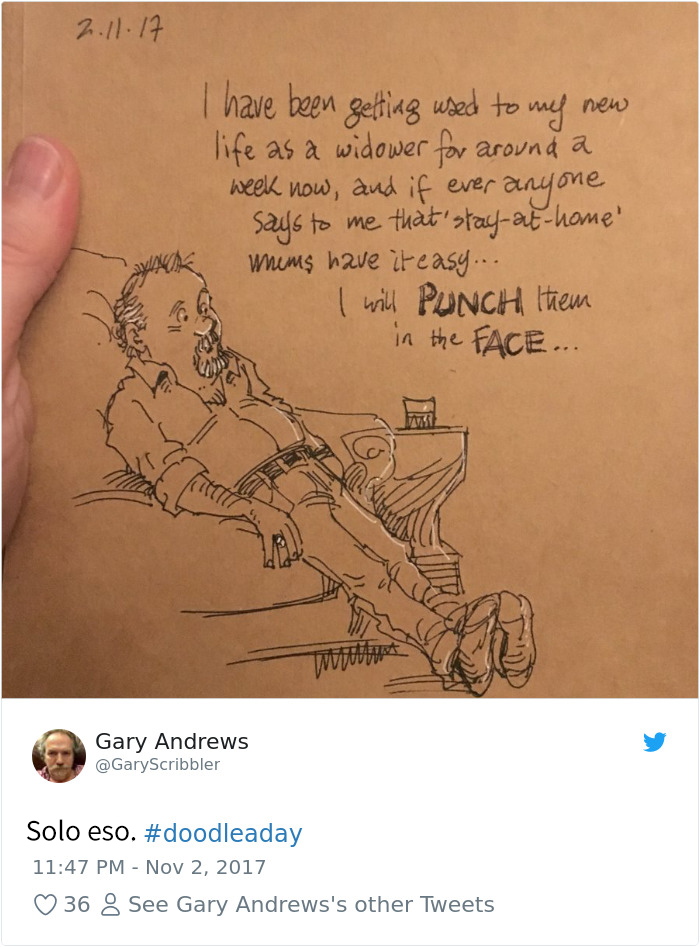 2.11.17
I have been getting used to my new
life as a widower for around a
week now, and if ever anyone
says to me that 'stay-at-home'
mums have it easy...
I will PUNCH them
in the FACE...
Gary Andrews
@GaryScribbler
Solo eso. #doodleaday
11:47 PM - Nov 2, 2017
36 See Gary Andrews's other Tweets